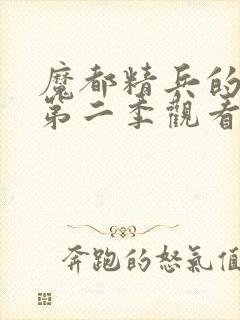 魔都精兵的
第二季觀看
奔跑的怒氣值